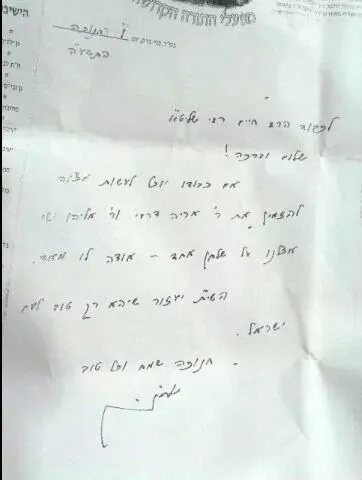 מפעלי התורה
הישיב
בס״ד, בני-ברק, יום ו' חנוכה
התשע״ה
לכבוד הרב חיים שליט״א
שלום וברכה!
אם כבודו יוכל לעשות מצוה
להזמין את ר' אריה דרעי ור' אליהו ישי
אצלנו על שלחן אחד – אודה לו מאד.
השי״ת יעזור שיהא רק טוב לעם
ישראל.
חנוכה שמח וכל טוב